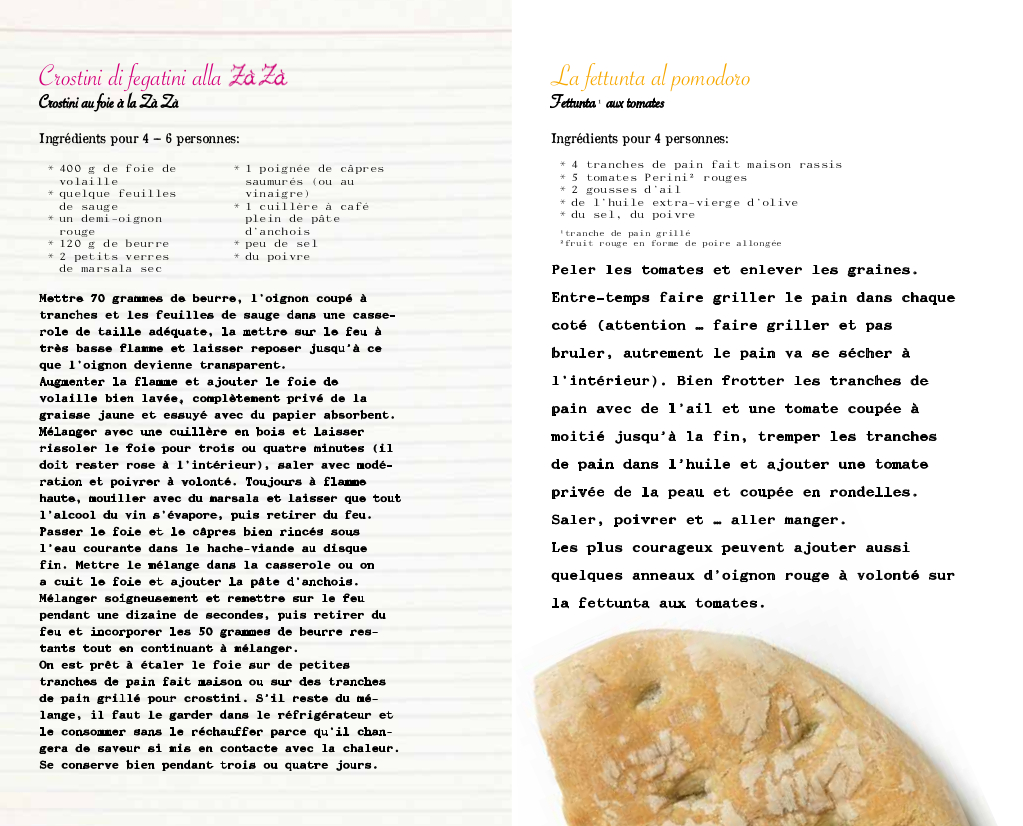 Crostini di fegatini alla Zà Zà
Crostini au foie à la Zà Zà
Ingrédients pour 4 – 6 personnes:
* 400 g de foie de
volaille
* quelque feuilles
de sauge
* un demi-oignon
rouge
* 120 g de beurre
* 2 petits verres
de marsala sec
* 1 poignée de câpres
saumurés (ou au
vinaigre)
* 1 cuillère à café
plein de pâte
d'anchois
* peu de sel
* du poivre
Mettre 70 grammes de beurre, l'oignon coupé à
tranches et les feuilles de sauge dans une casse-
role de taille adéquate, la mettre sur le feu à
très basse flamme et laisser reposer jusqu'à ce
que l'oignon devienne transparent.
Augmenter la flamme et ajouter le foie de
volaille bien lavée, complètement privé de la
graisse jaune et essuyé avec du papier absorbent.
Mélanger avec une cuillère en bois et laisser
rissoler le foie pour trois ou quatre minutes (il
doit rester rose à l'intérieur), saler avec modé-
ration et poivrer à volonté. Toujours à flamme
haute, mouiller avec du marsala et laisser que tout
l'alcool du vin s'évapore, puis retirer du feu.
Passer le foie et le câpres bien rincés sous
l'eau courante dans le hache-viande au disque
fin. Mettre le mélange dans la casserole ou on
a cuit le foie et ajouter la pâte d'anchois.
Mélanger soigneusement et remettre sur le feu
pendant une dizaine de secondes, puis retirer du
feu et incorporer les 50 grammes de beurre res-
tants tout en continuant à mélanger.
On est prêt à étaler le foie sur de petites
tranches de pain fait maison ou sur des tranches
de pain grillé pour crostini. S'il reste du mé-
lange, il faut le garder dans le réfrigérateur et
le consommer sans le réchauffer parce qu'il chan-
gera de saveur si mis en contacte avec la chaleur.
Se conserve bien pendant trois ou quatre jours.
La fettunta al pomodoro
Fettunta¹ aux tomates
Ingrédients pour 4 personnes:
* 4 tranches de pain fait maison rassis
* 5 tomates Perini² rouges
* 2 gousses d'ail
* de l'huile extra-vierge d'olive
* du sel, du poivre
¹tranche de pain grillé
²fruit rouge en forme de poire allongée
Peler les tomates et enlever les graines.
Entre-temps faire griller le pain dans chaque
coté (attention … faire griller et pas
bruler, autrement le pain va se sécher à
l'intérieur). Bien frotter les tranches de
pain avec de l'ail et une tomate coupée à
moitié jusqu'à la fin, tremper les tranches
de pain dans l'huile et ajouter une tomate
privée de la peau et coupée en rondelles.
Saler, poivrer et … aller manger.
Les plus courageux peuvent ajouter aussi
quelques anneaux d'oignon rouge à volonté sur
la fettunta aux tomates.